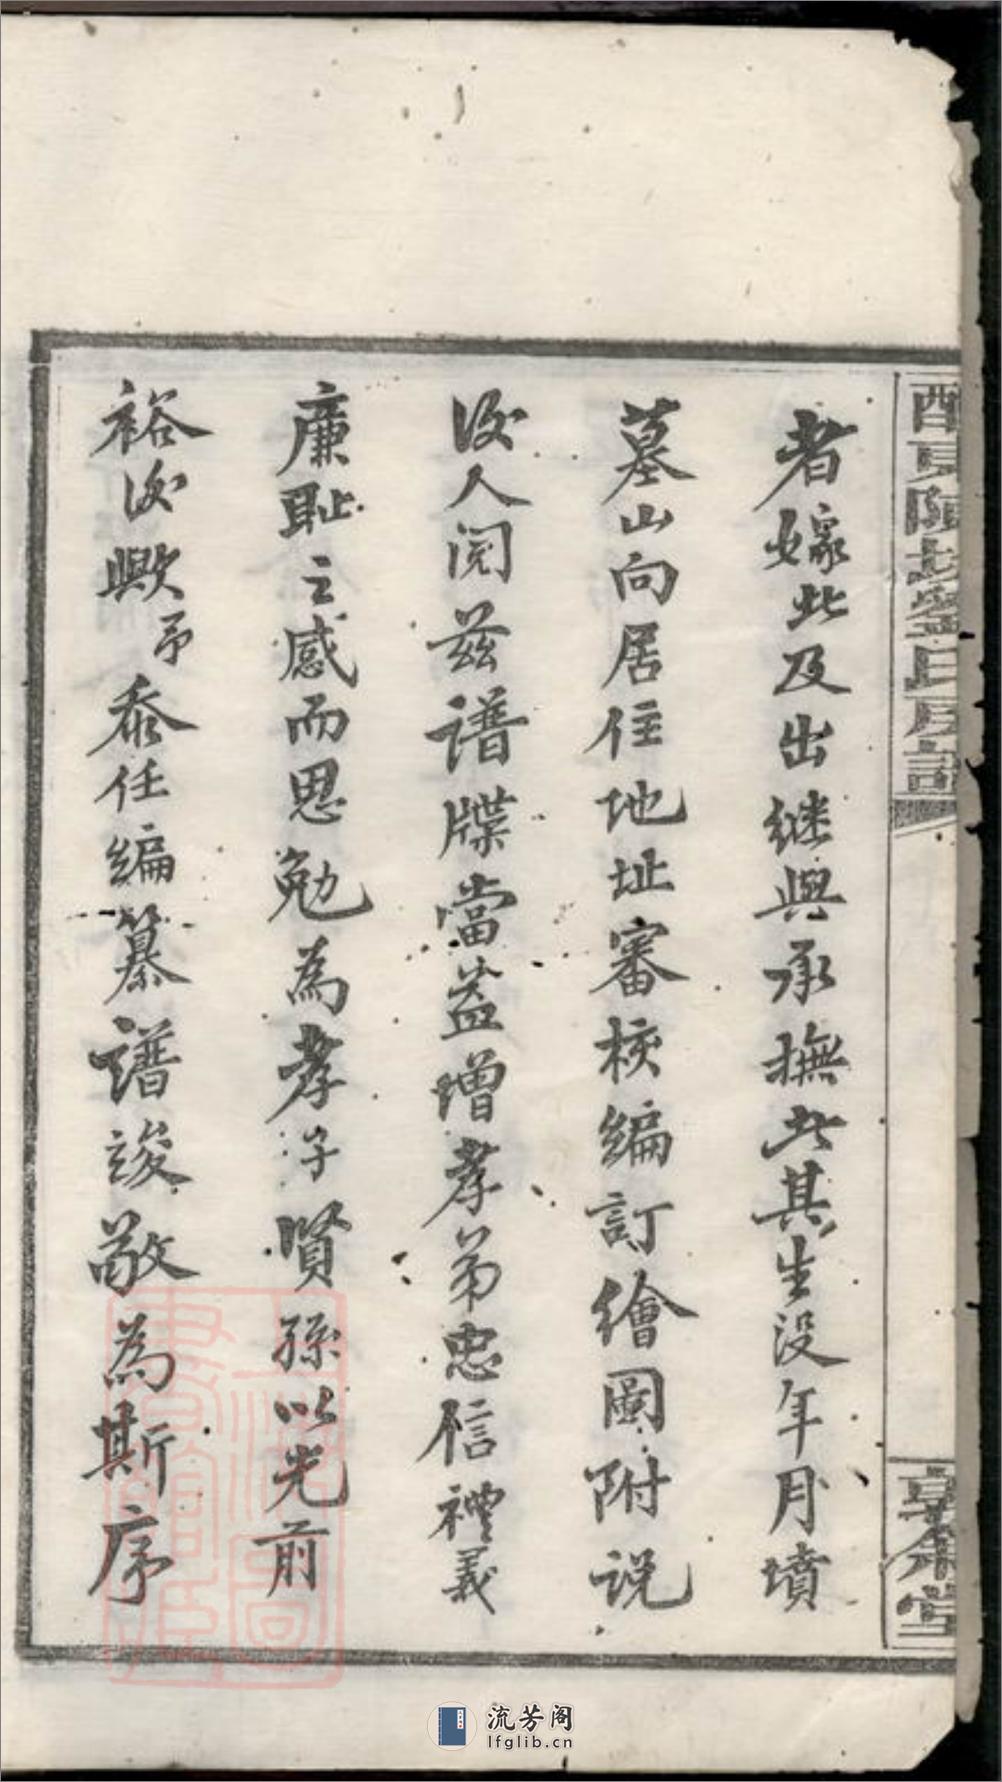 者嫁此及出继與承撫此其生没年月墳
墓山向居住地址審核編訂繪圖附説
後人閱茲譜牒當益增孝弟忠信禮義
廉恥之感而思勉為孝子賢孫以光前
裕後歟予忝任編纂譜竣敬為斯序
流芳阁
lfglib.cn